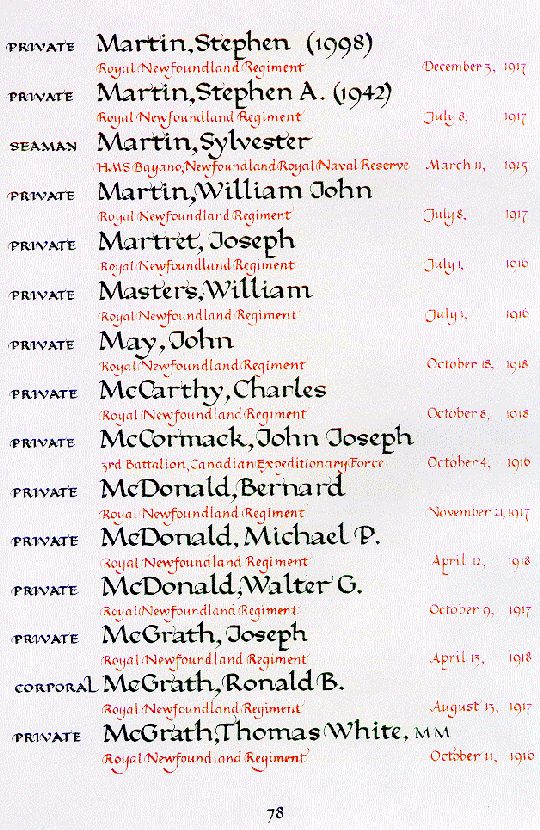 PRIVATE Martin, Stephen (1998)
Royal Newfoundland Regiment December 3, 1917
PRIVATE Martin, Stephen A. (1942)
Royal Newfoundland Regiment July 8, 1917
SEAMAN Martin, Sylvester
H.M.S Bayano, Newfoundland Royal Naval Reserve March 11, 1915
PRIVATE Martin, William John
Royal Newfoundland Regiment July 8, 1917
PRIVATE Martret, Joseph
Royal Newfoundland Regiment July 1, 1916
PRIVATE Masters, William
Royal Newfoundland Regiment July 1, 1916
PRIVATE May, John
Royal Newfoundland Regiment October 18, 1918
PRIVATE McCarthy, Charles
Royal Newfoundland Regiment October 8, 1918
PRIVATE McCormack, John Joseph
3rd Battalion, Canadian Expeditionary Force October 4, 1916
PRIVATE McDonald, Bernard
Royal Newfoundland Regiment November 21, 1917
PRIVATE McDonald, Michael P.
Royal Newfoundland Regiment April 12, 1918
PRIVATE McDonald, Walter G.
Royal Newfoundland Regiment October 9, 1917
PRIVATE McGrath, Joseph
Royal Newfoundland Regiment April 13, 1918
CORPORAL McGrath, Ronald B.
Royal Newfoundland Regiment August 13, 1917
PRIVATE McGrath, Thomas White, MM
Royal Newfoundland Regiment October 11, 1916
78